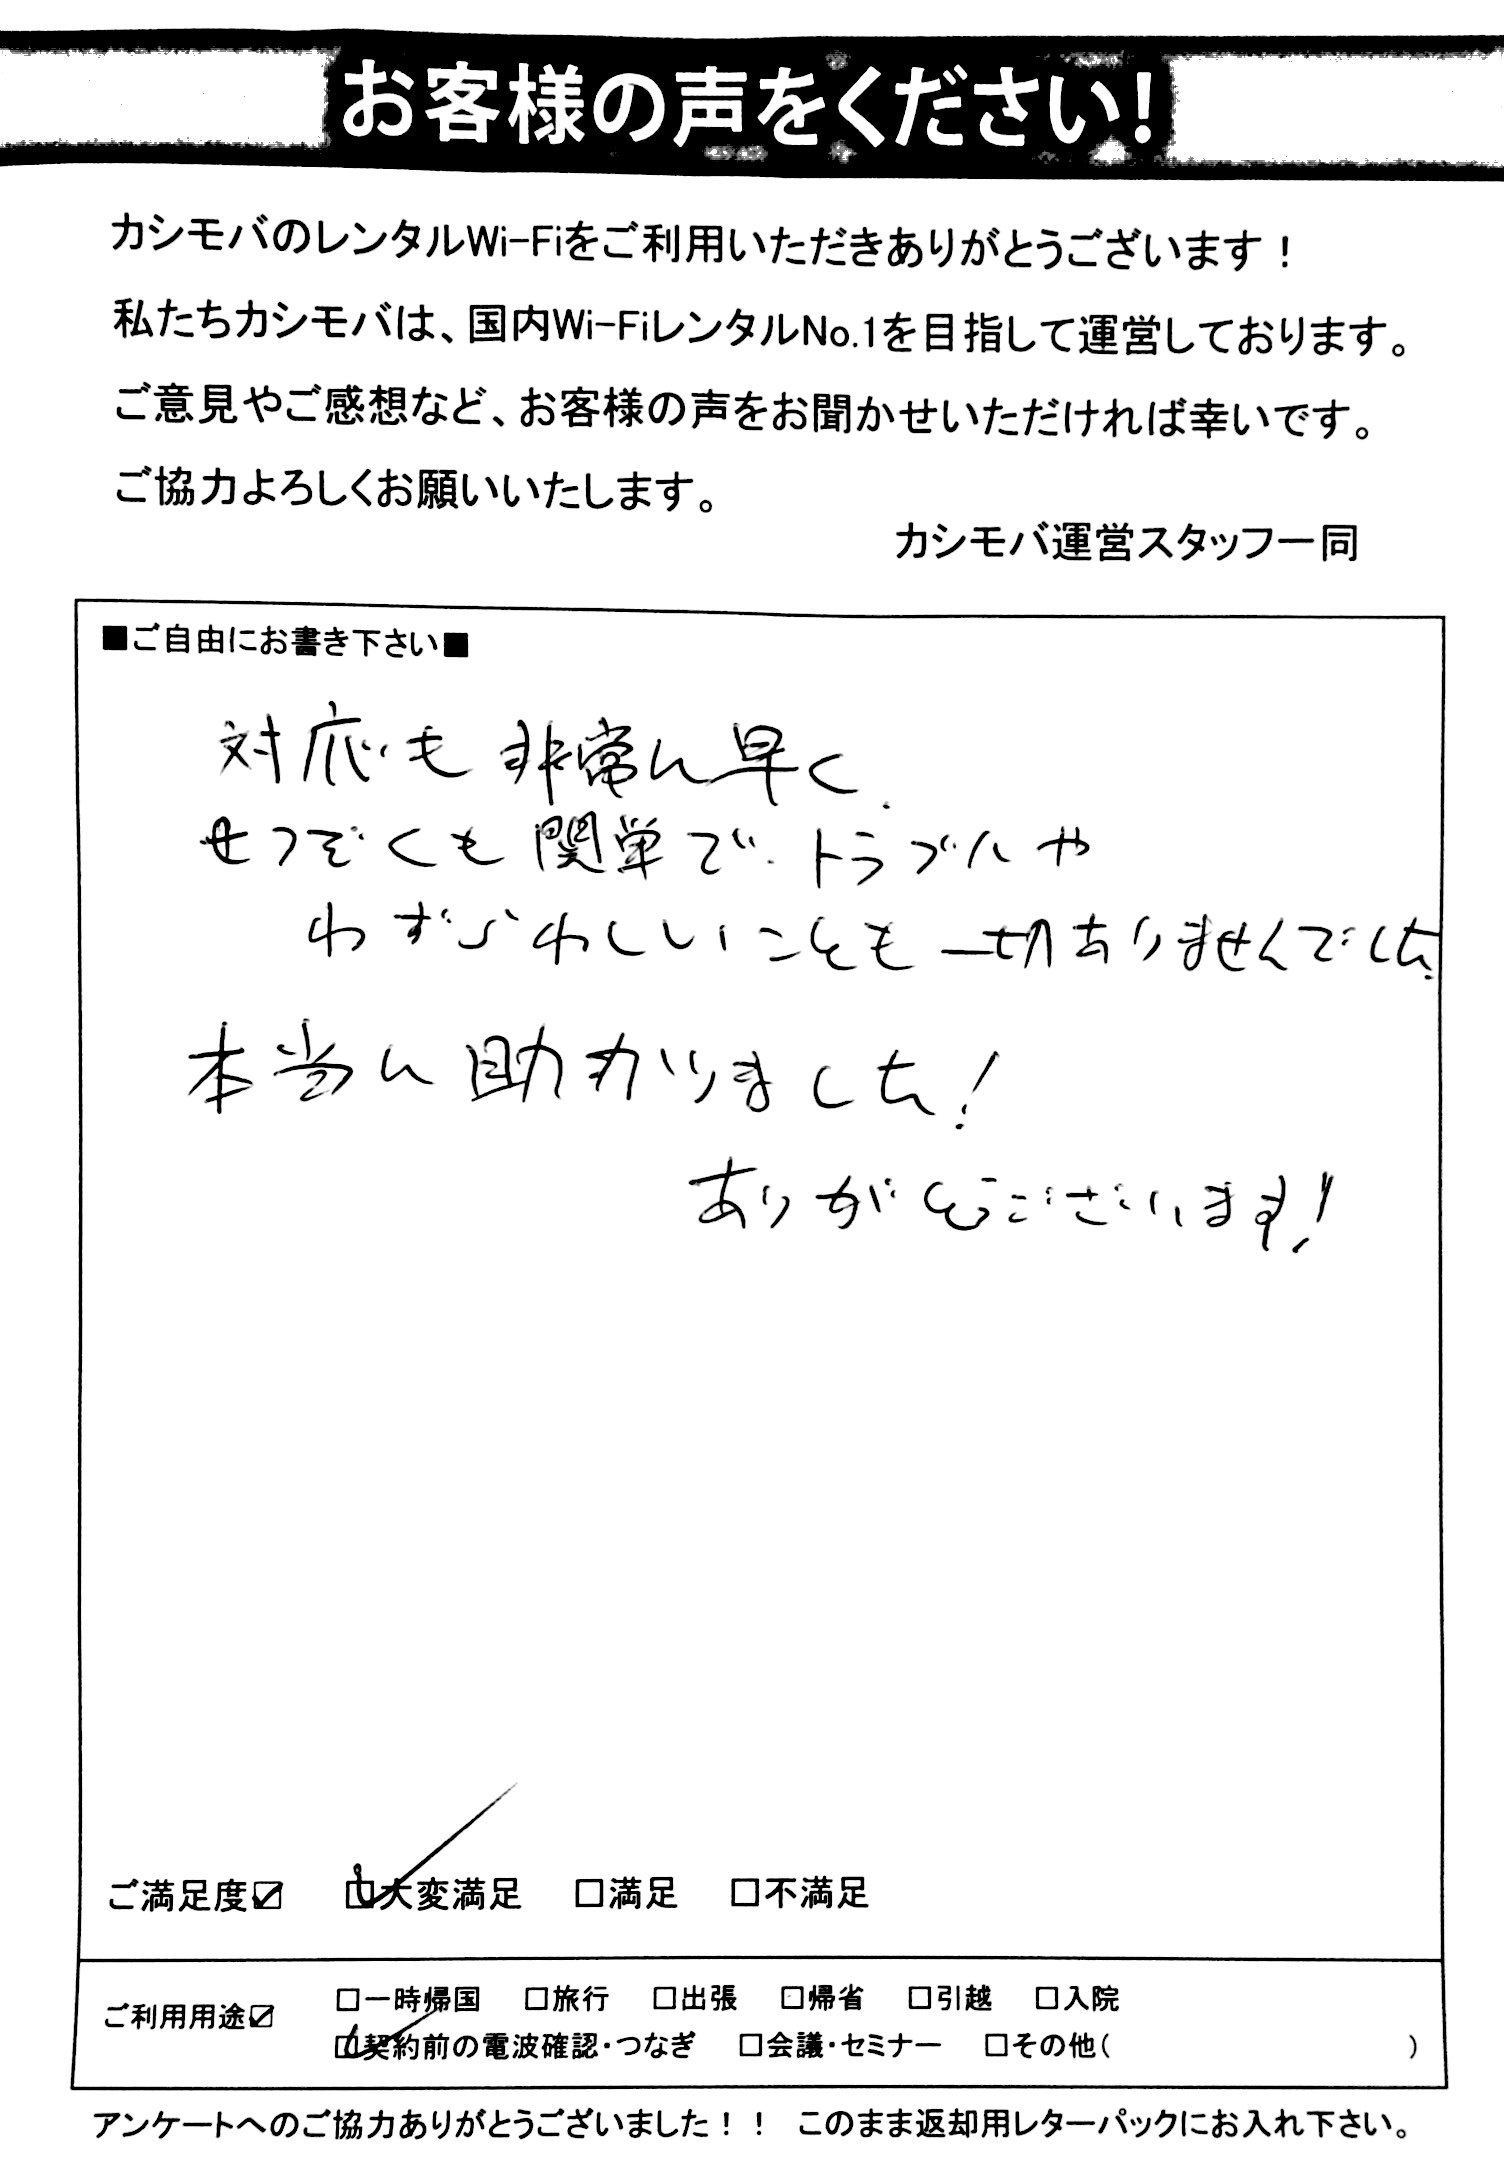 お客様の声をください!
カシモバのレンタルWi-Fiをご利用いただきありがとうございます！
私たちカシモバは、国内Wi-FiレンタルNo.1を目指して運営しております。
ご意見やご感想など、お客様の声をお聞かせいただければ幸いです。
ご協力よろしくお願いいたします。
カシモバ運営スタッフ一同
■ご自由にお書き下さい■
対応も非常に早く、
せつぞくも関単で、トラブルや
わずらわしいことも一切ありませんでした。
本当に助かりました!
ありがとうございます!
ご満足度☑ ☑大変満足 □満足 □不満足
ご利用用途☑ □一時帰国 □旅行 □出張 □帰省 □引越 □入院
☑契約前の電波確認・つなぎ □会議・セミナー □その他( )
アンケートへのご協力ありがとうございました！！ このまま返却用レターパックにお入れ下さい。